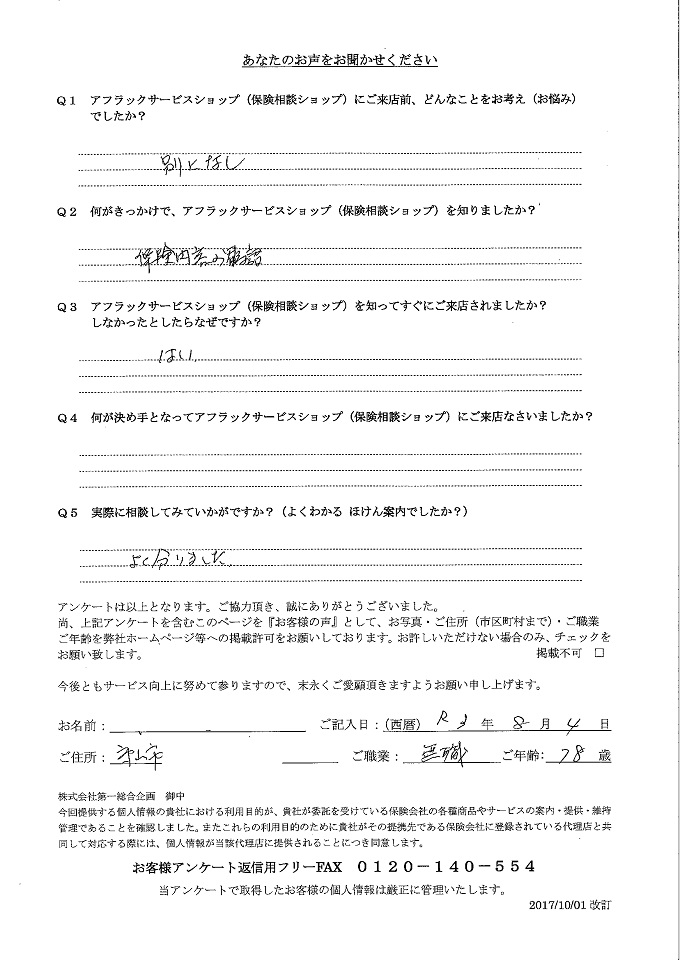 あなたのお声をお聞かせください
Q1 アフラックサービスショップ（保険相談ショップ）にご来店前、どんなことをお考え（お悩み）
でしたか？
別になし
Q2 何がきっかけで、アフラックサービスショップ（保険相談ショップ）を知りましたか？
保険内容の確認
Q3 アフラックサービスショップ（保険相談ショップ）を知ってすぐにご来店されましたか？
しなかったとしたらなぜですか？
はい
Q4 何が決め手となってアフラックサービスショップ（保険相談ショップ）にご来店なさいましたか？
Q5 実際に相談してみていかがですか？（よくわかる ほけん案内でしたか？）
よく分りました
アンケートは以上となります。ご協力頂き、誠にありがとうございました。
尚、上記アンケートを含むこのページを『お客様の声』として、お写真・ご住所（市区町村まで）・ご職業
ご年齢を弊社ホームページ等への掲載許可をお願いしております。お許しいただけない場合のみ、チェックを
お願い致します。 掲載不可 □
今後ともサービス向上に努めて参りますので、末永くご愛顧頂きますようお願い申し上げます。
お名前： ご記入日：（西暦） R 年 8 月 4 日
ご住所： ご職業： 無職 ご年齢： 78 歳
株式会社第一総合企画 御中
今回提供する個人情報の貴社における利用目的が、貴社が委託を受けている保険会社の各種商品やサービスの案内・提供・維持
管理であることを確認しました。またこれらの利用目的のために貴社がその提携先である保険会社に登録されている代理店と共
同して対応する際には、個人情報が当該代理店に提供されることにつき同意します。
お客様アンケート返信用フリーFAX 0120－140－554
当アンケートで取得したお客様の個人情報は厳正に管理いたします。
2017/10/01 改訂